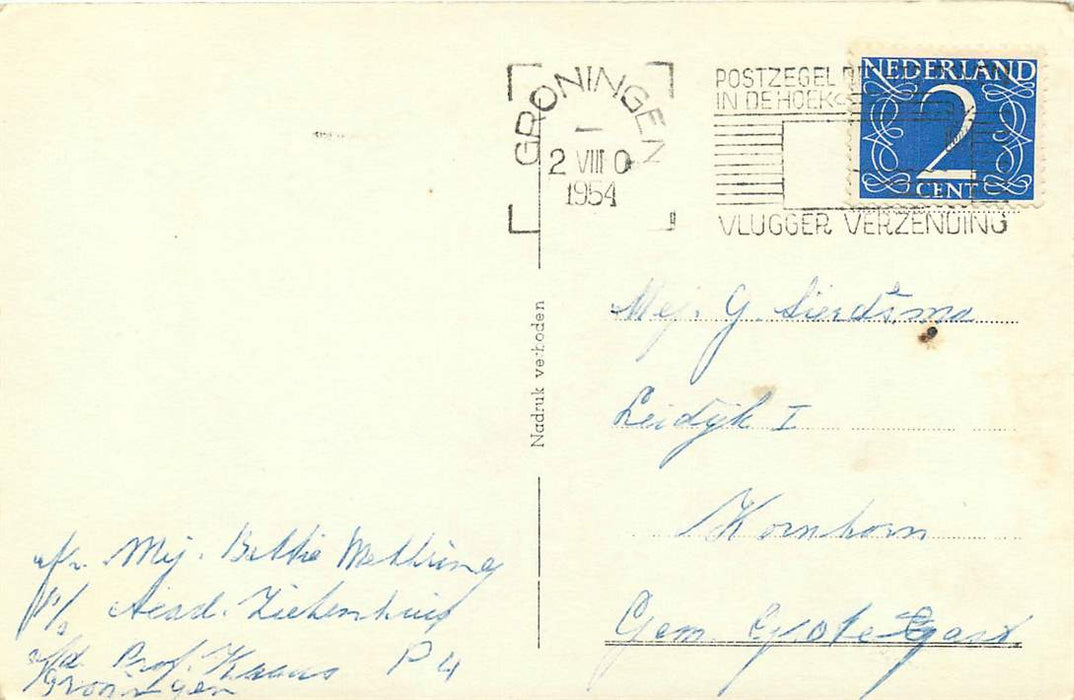 GRONINGEN
2 VIII 0
1954
POSTZEGEL
IN DE HOEK
VLUGGER VERZENDING
NEDERLAND
2
CENT
Nadruk verboden
Mej. G. Sierdsma
Leidijk I
Kornhorn
Gem. Grotegast
afz. Mej. Bettie
p/a Acad. Ziekenhuis
afd. Prof. P 4
Groningen